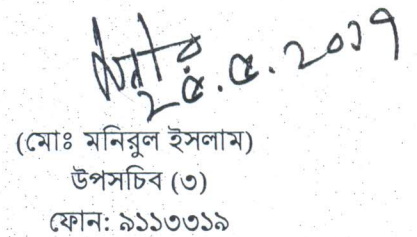 ২৫.৫.২০১৭
(মোঃ মনিরুল ইসলাম)
উপসচিব (৩)
ফোন: ৯১১৩৩১৯